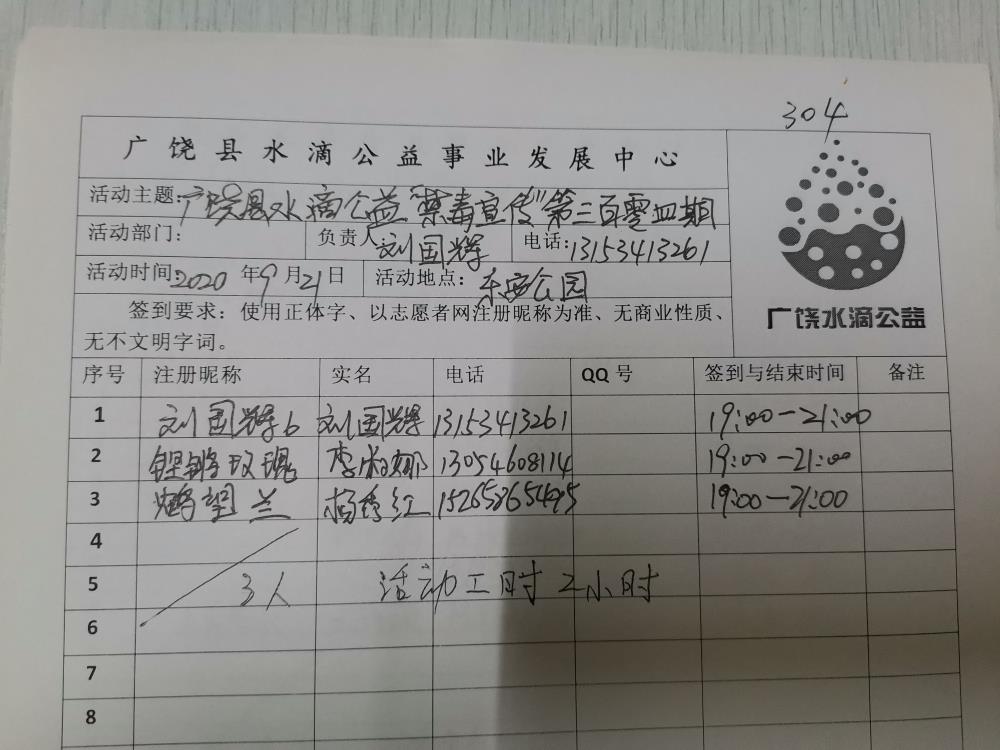 304
广饶县水滴公益事业发展中心
活动主题:广饶县水滴公益“禁毒宣传”第三百零四期
活动部门: 负责人 刘国辉 电话:13153413261
活动时间:2020 年9月21日 活动地点: 乐安公园
签到要求:使用正体字、以志愿者网注册昵称为准、无商业性质、
无不文明字词。
广饶水滴公益
序号 注册昵称 实名 电话 QQ号 签到与结束时间 备注
1 刘国辉6 刘国辉 13153413261 19:00-21:00
2 铿锵玫瑰 李 娜 13054608114 19:00-21:00
3 鹤望兰 杨秀红 15265865495 19:00-21:00
4
5 3人 活动工时2小时
6
7
8